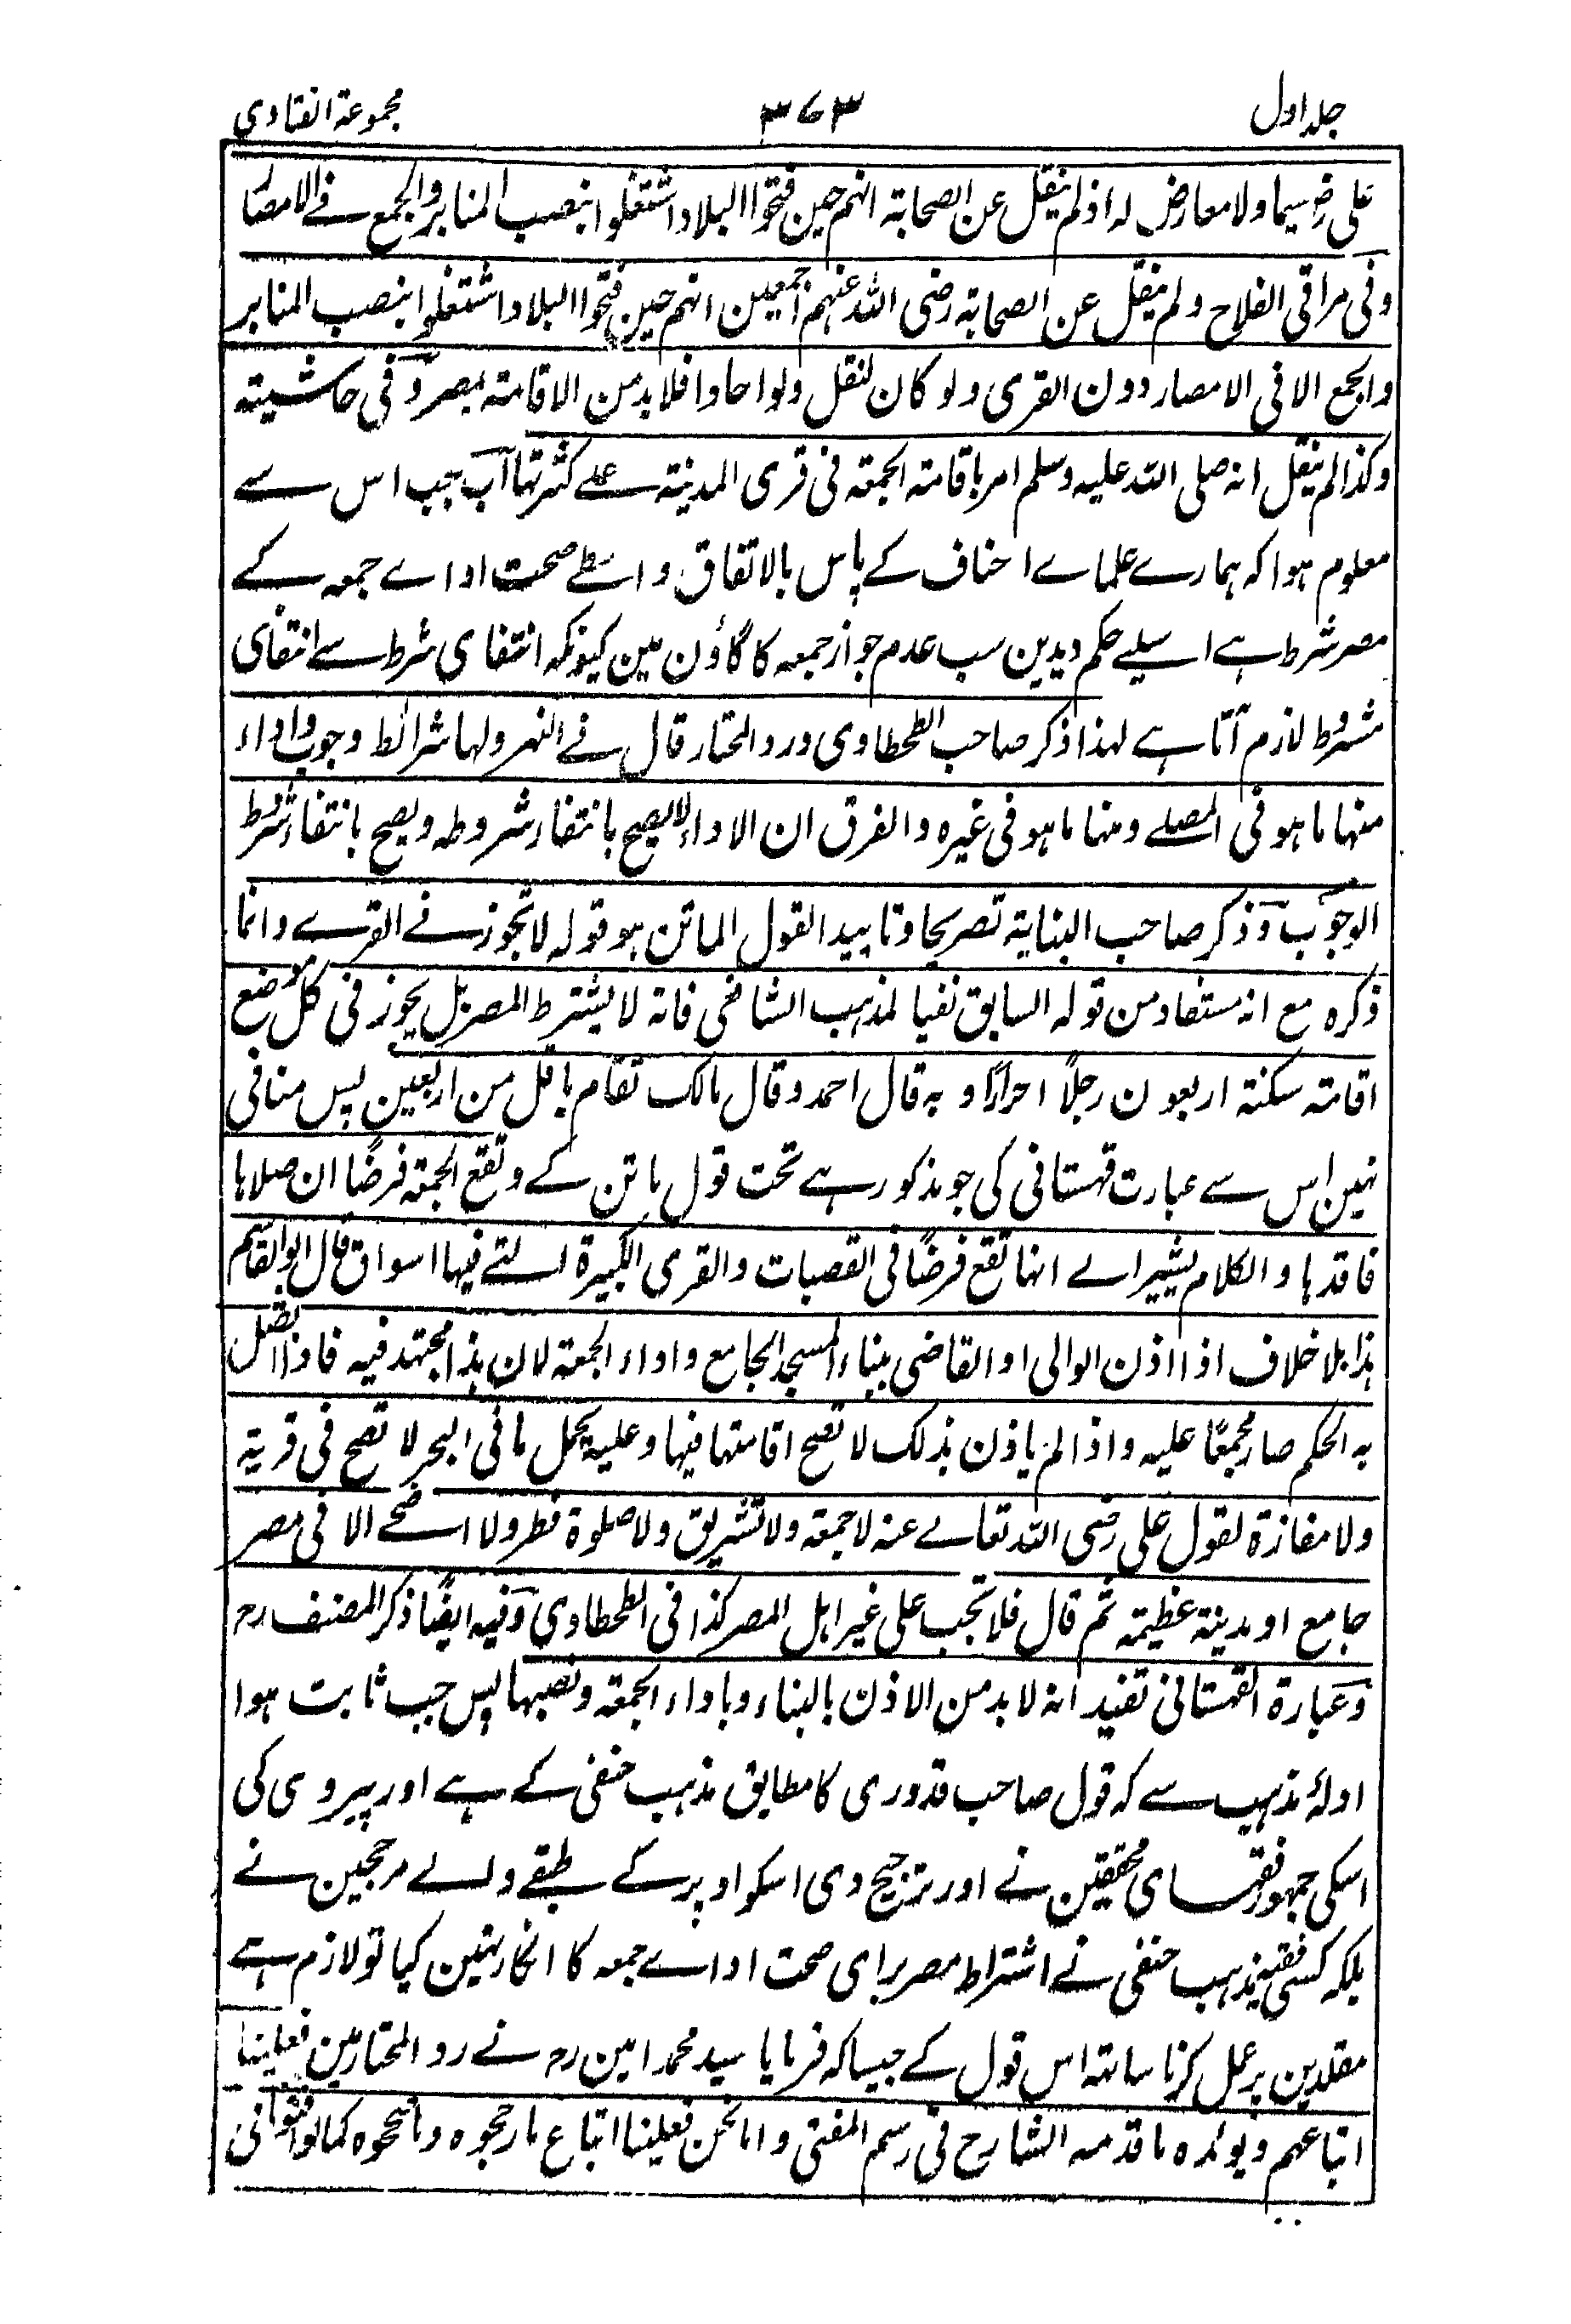 جلد اول ۳۷۳ مجموعۃ الفتاوی
علی رض سیما ولا معارض له اذ لم ینقل عن الصحابۃ انہم حین فتحوا البلاد اشتغلوا بنصب المنابر والجمع فے الامصار
وفی مراقی الفلاح ولم ینقل عن الصحابۃ رضی اللہ عنہم اجمعین انہم حین فتحوا البلاد اشتغلوا بنصب المنابر
والجمع الا فی الامصار دون القری ولو کان لنقل ولو احادا فلا بد من الاقامۃ بمصر وفی حاشیتہ
وکذا لم ینقل انہ صلی اللہ علیہ وسلم امر باقامۃ الجمعۃ فی قری المدینۃ علے کثرتہا آب جب اس سے
معلوم ہوا کہ ہمارے علماے احناف کے پاس بالاتفاق واسطے صحت اداے جمعہ کے
مصر شرط ہے اسیلیے حکم دیدین سب عدم جواز جمعہ کا گاؤن مین کیونکہ انتفای شرط سے انتفای
مشروط لازم آتا ہے لہذا ذکر صاحب الطحطاوی ورد المحتار قال فے النہر ولہا شرائط وجوب واداء
منہا ما ہو فی المصلے ومنہا ما ہو فی غیرہ والفرق ان الاداء لا یصح بانتفاء شروطہ ویصح بانتفاء شروط
الوجوب وذکر صاحب البنایۃ تصریحا وتاییدا لقول الماتن ہو قولہ لا تجوز فے القرے وانما
ذکرہ مع انہ مستفاد من قولہ السابق نفیا لمذہب الشافعی فانہ لا یشترط المصر بل یجوز فی کل موضع
اقامتہ سکنتہ اربعون رجلاً احرارًا و بہ قال احمد وقال مالک تقام باقل من اربعین پس منافی
نہین اس سے عبارت قہستانی کی جو مذکور ہے تحت قول ماتن کے وتقع الجمعۃ فرضًا ان صلاہا
فاقدہا والکلام یشیر الے انہا تقع فرضًا فی القصبات والقری الکبیرۃ التے فیہا اسواق قال ابو القاسم
ہذا بلا خلاف اذا اذن الوالی او القاضی ببناء المسجد الجامع واداء الجمعۃ لان ہذا مجتہد فیہ فاذا اتصل
بہ الحکم صار مجمعًا علیہ واذا لم یاذن بذلک لا تصح اقامتہا فیہا وعلیہ یحمل ما فی البحر لا تصح فی قریۃ
ولا مفازۃ لقول علی رضی اللہ تعالے عنہ لا جمعۃ ولا تشریق ولا صلوۃ فطر ولا اضحے الا فی مصر
جامع او مدینۃ عظیمۃ ثم قال فلا تجب علی غیر اہل المصر کذا فی الطحطاوی وفیہ ایضًا ذکر المصنف رح
وعبارۃ القہستانی تفید انہ لا بد من الاذن بالبناء وباداء الجمعۃ ونصبہا پس جب ثابت ہوا
ادلۂ مذہب سے کہ قول صاحب قدوری کا مطابق مذہب حنفی کے ہے اور پیروی کی
اسکی جمہور فقہای محققین نے اور ترجیح دی اسکو اوپر کے طبقے والے مرجحین نے
بلکہ کسی فقیہ مذہب حنفی نے اشتراط مصر برای صحت اداے جمعہ کا انکار نہین کیا تو لازم ہے
مقلدین پر عمل کرنا ساتھ اس قول کے جیسا کہ فرمایا سید محمد امین رح نے رد المحتار مین فعلینا
اتباعہم ویؤیدہ ما قدمہ الشارح فی رسم المفتی واما نحن فعلینا اتباع ما رجحوہ وما صححوہ کما لو افتوا فی